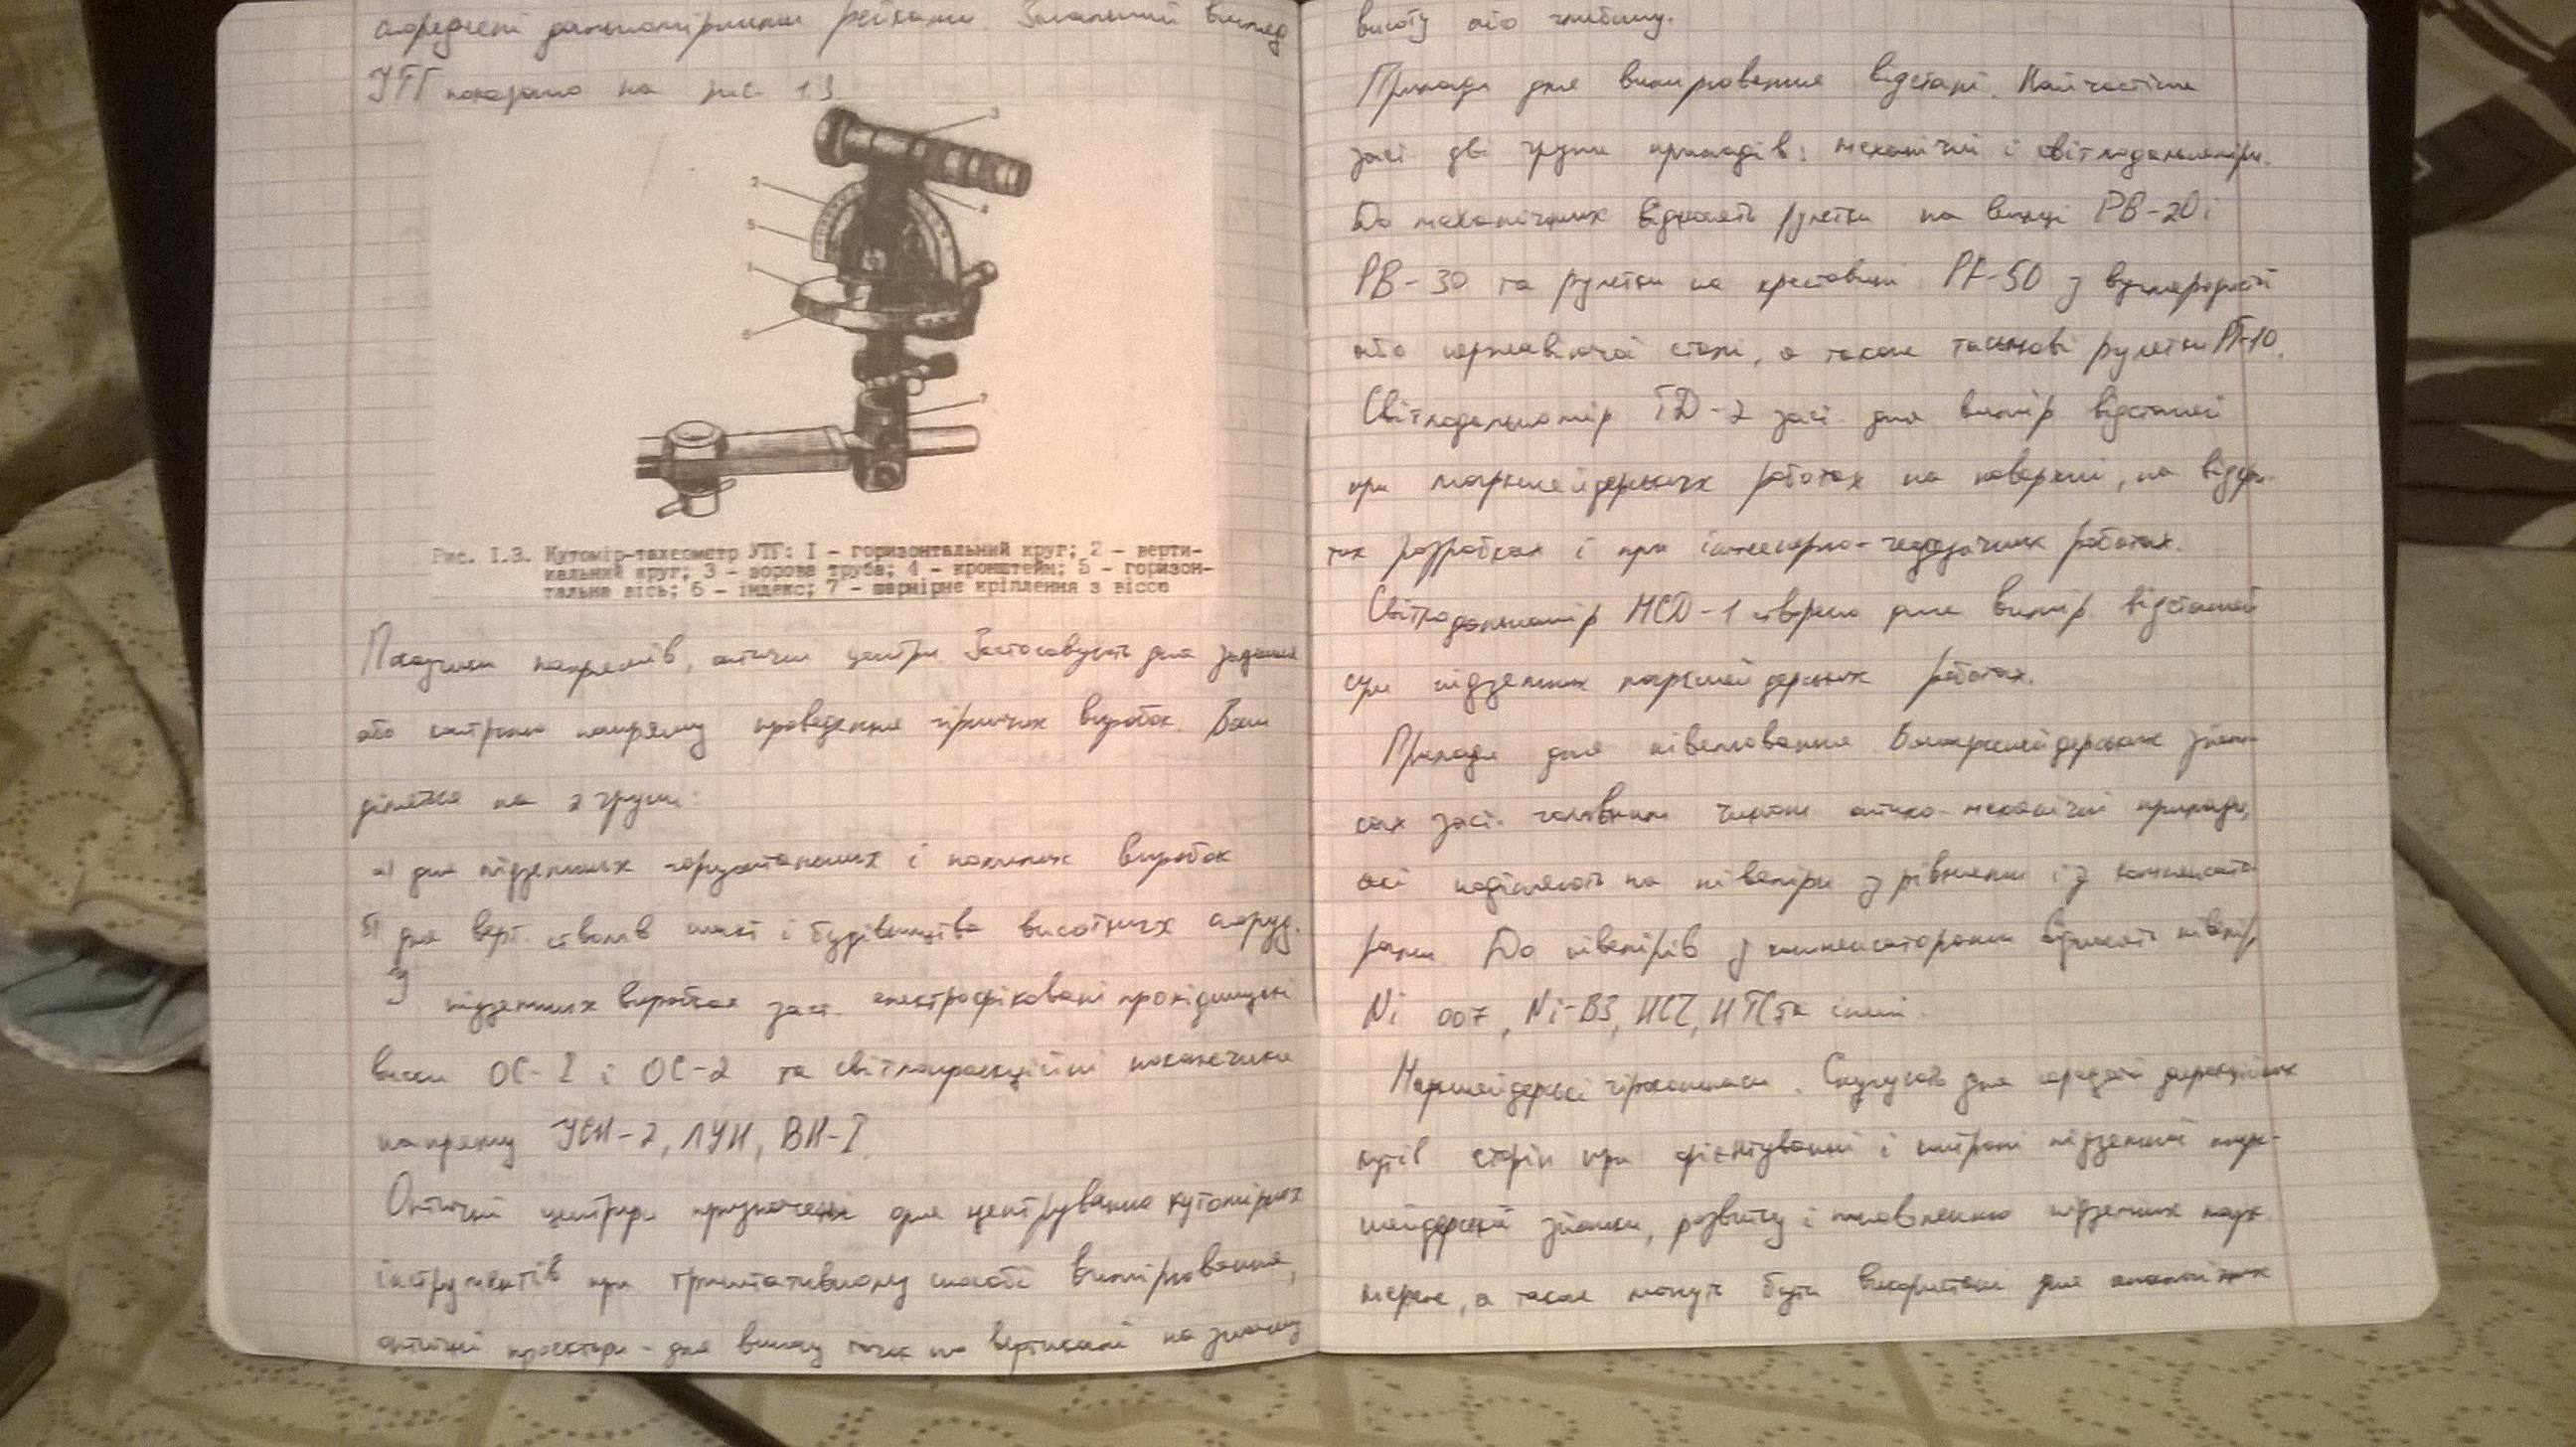 середнені дальномірними рейками. Загальний вигляд
УТГ показано на рис. 1.3.
3
2
4
5
1
6
7
Рис. I.3. Кутомір-тахеометр УТГ: I – горизонтальний круг; 2 – верти-
кальний круг; 3 – зорова труба; 4 – кронштейн; 5 – горизон-
тальна вісь; 6 – індекс; 7 – шарнірне кріплення з віссю
Покажчики напрямків, оптичні центри. Застосовують для задання
або контролю напрямку проведення гірничих виробок. Вони
діляться на 2 групи:
а) для підземних горизонтальних і похилих виробок
б) для верт. стволів шахт і будівництва висотних споруд.
У
підземних виробках заст. електрофіковані прохідницькі
виски ОС-I і ОС-2 та світлопроекційні покажчики
напрямку УСН-2, ЛУН, ВН-I.
Оптичні центрири призначені для центрування кутомірних
інструментів при триштативному способі вимірювання,
оптичні проектири - для виносу точок по вертикалі на значну
висоту або глибину.
Прилади для вимірювання відстані. Найчастіше
заст дві групи приладів: механічні і світлодальноміри.
До механічних відносять рулетки на вилці РВ-20 і
РВ-30 та рулетки на крестовині РК-50 з вуглеродистої
або нержавіючої сталі, а також тасьмові рулетки РТ-10.
Світлодальномір ГД-2 заст. для вимір відстаней
при маркшейдерських роботах на поверхні, на відкри-
тих розробках і при інженерно-геодезичних роботах.
Світлодальномір МСД-1 створено для вимір. відстаней
при підземних маркшейдерських роботах.
Прилади для нівелювання. В маркшейдерських зйом-
ках заст. головним чином оптико-механічні прилади,
які поділяють на нівеліри з рівнями і з компенсато-
рами. До нівелірів з компенсаторами відносять нівелір
Ni 007, Ni-B3, НС7, НТС та інші.
Маркшейдерські гірокомпаси. Служать для передачі дирекційних
кутів сторін при орієнтуванні і контролі підземної марк-
шейдерської зйомки, розвитку і поновленню підземних марк.
мереж, а також можуть бути використані для аналогічних